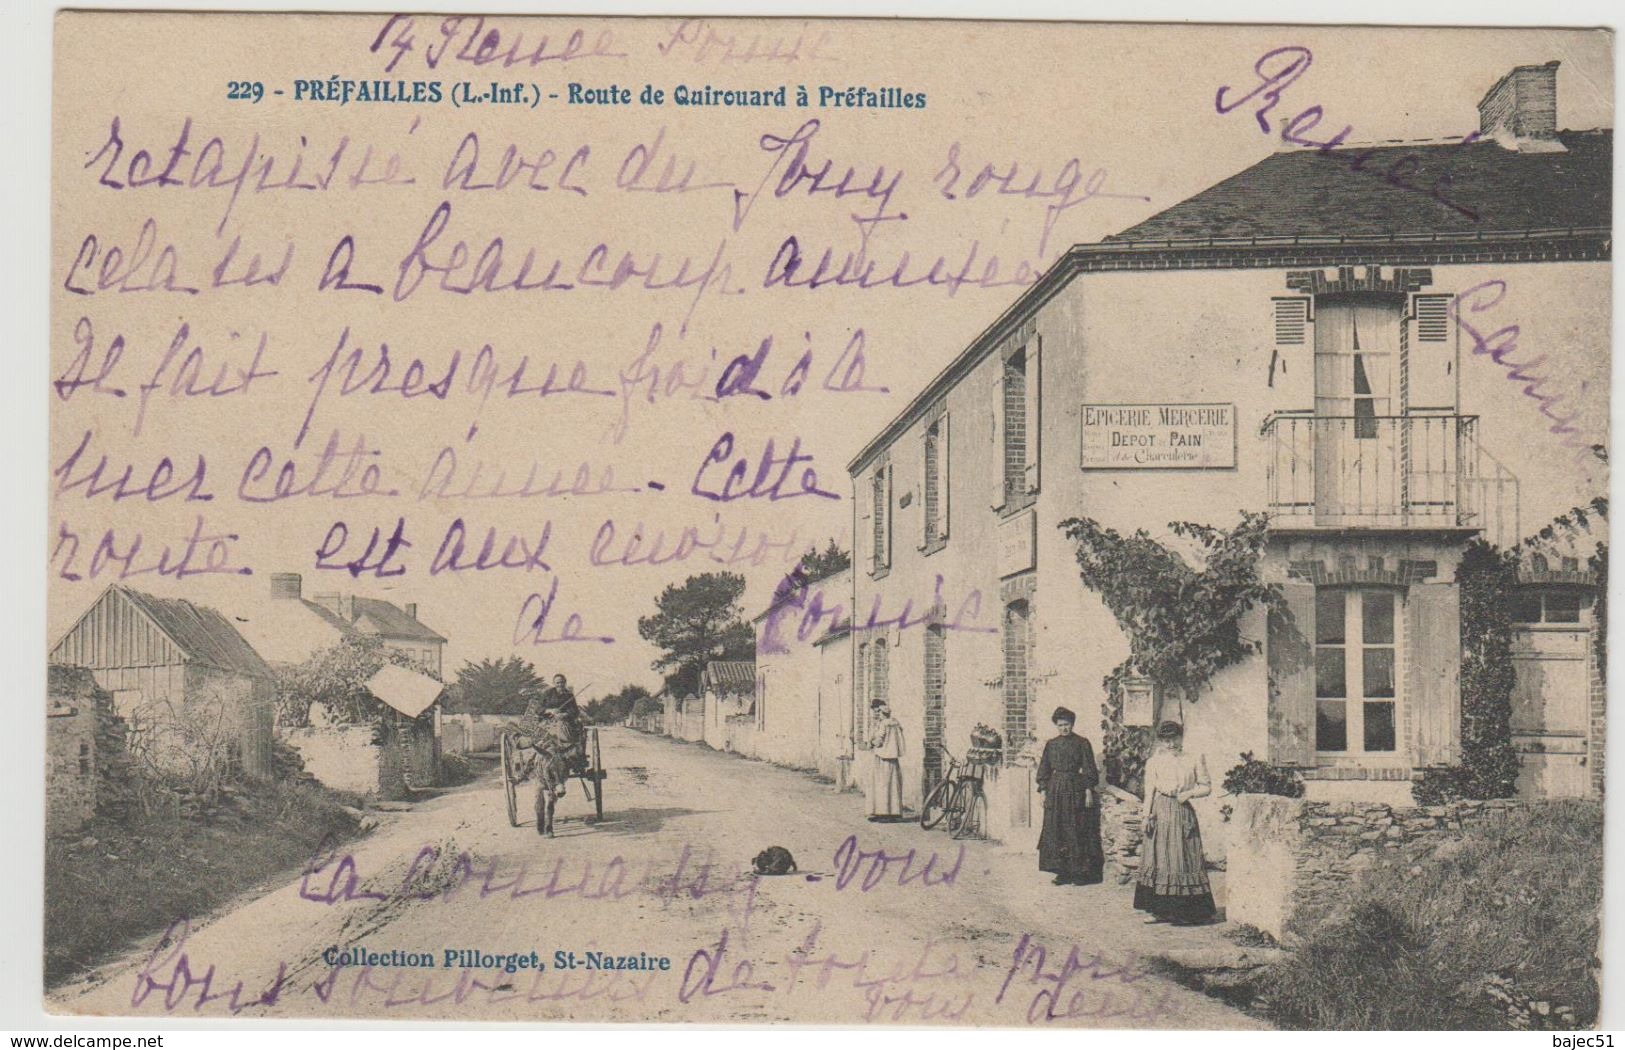 229 - PRÉFAILLES (L.-Inf.) - Route de Quirouard à Préfailles
retapissé avec du Jouy rouge
cela a beaucoup amusée
Il fait presque froid à la
mer cette année - Cette
route est aux environs
de Pornic
La connaissez-vous.
Bons souvenirs de toute pour
vous deux
Renée
EPICERIE MERCERIE
DEPOT DE PAIN
et de Charcuterie
Collection Pillorget, St-Nazaire
delcampe.net
bajec51